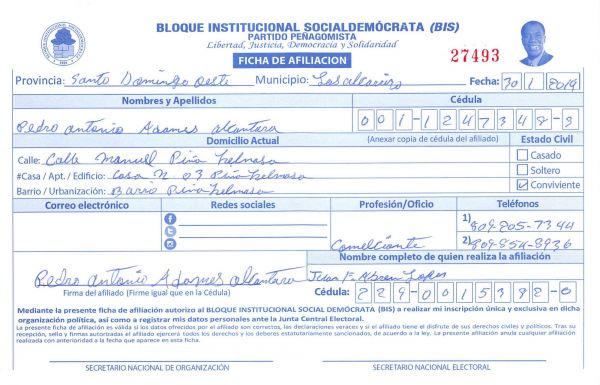 BLOQUE INSTITUCIONAL SOCIALDEMÓCRATA (BIS)
PARTIDO PEÑAGOMISTA
Libertad, Justicia, Democracia y Solidaridad
FICHA DE AFILIACION
27493
Provincia: Santo Domingo Oeste Municipio: Los alcarrizo Fecha: 30/1/2019
Nombres y Apellidos
Cédula
Pedro antonio Adames alcantara
001-1247348-8
Domicilio Actual
(Anexar copia de cédula del afiliado)
Estado Civil
Calle: Calle Manuel Piña
Casado
#Casa / Apt. / Edificio: Casa N. 03 Piña
Soltero
Barrio / Urbanización: Barrio Piña
Conviviente
Correo electrónico
Redes sociales
Profesión/Oficio
Teléfonos
1) 809-805-7344
Comelciante
2) 809-854-8936
Nombre completo de quien realiza la afiliación
Pedro Antonio Adames alcantara
Juan F. Abreu Lopez
Firma del afiliado (Firme igual que en la Cédula)
Cédula: 229-0015382-0
Mediante la presente ficha de afiliación autorizo al BLOQUE INSTITUCIONAL SOCIAL DEMÓCRATA (BIS) a realizar mi inscripción única y exclusiva en dicha
organización política, así como a registrar mis datos personales ante la Junta Central Electoral.
La presente ficha de afiliación es válida si los datos ofrecidos por el afiliado son correctos, las declaraciones veraces y si el afiliado tiene el disfrute de sus derechos civiles y políticos. Tras su
recepción, sello y firmas autorizadas el afiliado ejercerá todos los derechos y los deberes estatutariamente sancionados, de acuerdo a la ley. La presente afiliación anula cualquier afiliación
realizada con anterioridad a la fecha que aparece en esta ficha.
SECRETARIO NACIONAL DE ORGANIZACIÓN
SECRETARIO NACIONAL ELECTORAL